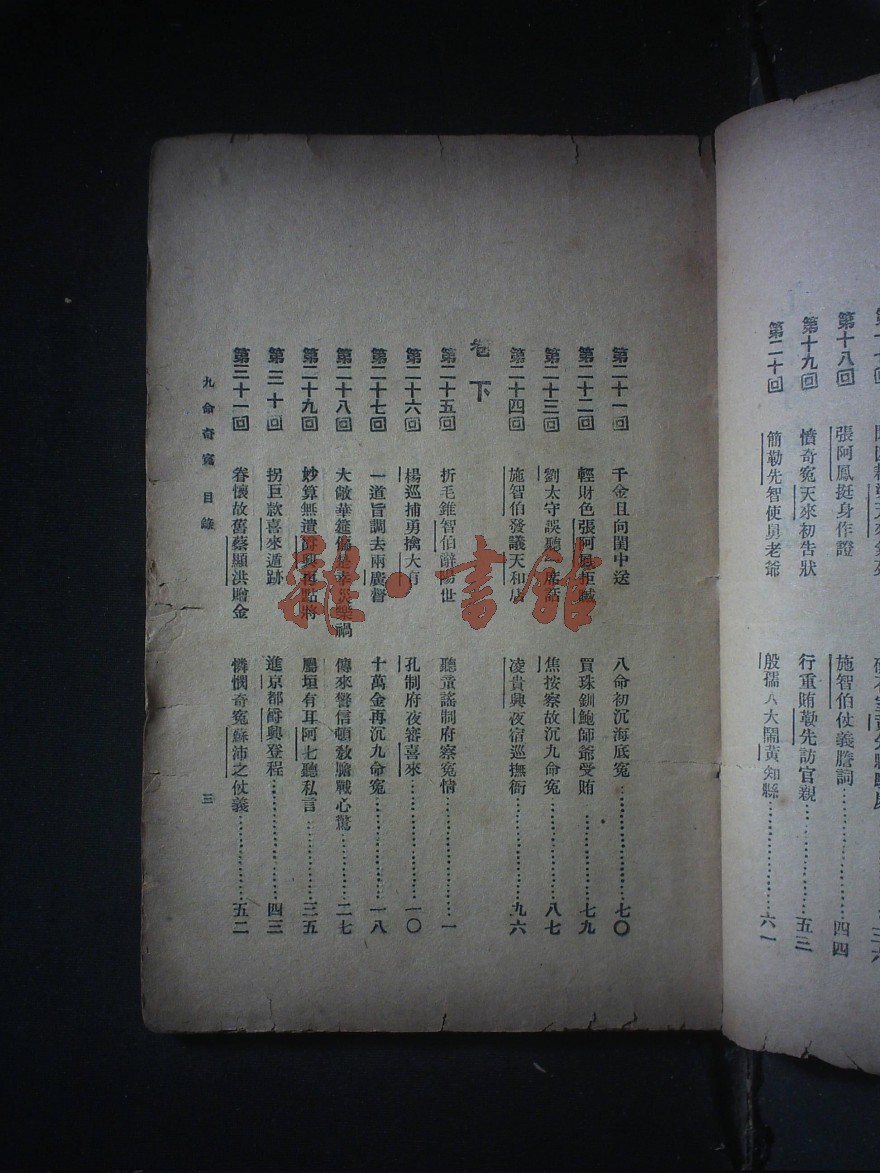 第十八回 張阿鳳挺身作證 施智伯仗義謄詞………四四
第十九回 憤奇冤天來初告狀 行重賄勒先訪官親………五三
第二十回 簡勒先智使舅老爺 殷孺人大鬧黃知縣………六一
第二十一回 千金且向閨中送 八命初沉海底冤………七〇
第二十二回 輕財色張阿鳳拒賊 買珠釧鮑師爺受賄………七九
第二十三回 劉太守誤聽 席話 焦按察故沉九命冤………八七
第二十四回 施智伯發議天和店 凌貴興夜宿巡撫衙………九六
卷下
第二十五回 折毛錐智伯辭 世 聽童謠制府察冤情………一
第二十六回 楊巡捕勇擒大有 孔制府夜審喜來………一〇
第二十七回 一道旨調去兩廣督 十萬金再沉九命冤………一八
第二十八回 大敞華筵 幸災樂禍 傳來警信頓教膽戰心驚………二七
第二十九回 妙算無遺 興再點將 屬垣有耳阿七聽私言………三五
第三十回 拐巨款喜來遁跡 進京都爵興登程………四三
第三十一回 眷懷故舊蔡顯洪贈金 憐憫奇冤蘇沛之仗義………五二
九命奇冤 目錄
三
雜·書館